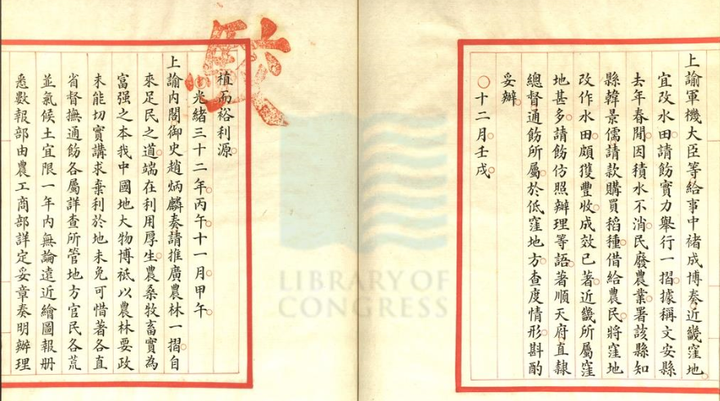 上諭軍機大臣等給事中褚成博奏近畿窪地
宜改水田請飭實力舉行一摺據稱文安縣
去年春間因積水不消民廢農業署該縣知
縣韓景儒請款購買稻種借給農民將窪地
改作水田頗獲豐收成效已著近畿所屬窪
地甚多請飭仿照辦理等語著順天府直隸
總督通飭所屬於低窪地方查度情形斟酌
妥辦
○十二月壬戌
植而裕利源
光緒三十二年丙午十一月甲午
上諭內閣御史趙炳麟奏請推廣農林一摺自
來足民之道端在利用厚生農桑牧畜實為
富强之本我中國地大物博祇以農林要政
未能切實講求棄利於地未免可惜著各直
省督撫通飭各屬詳查所管地方官民各荒
並氣候土宜限一年內無論遠近繪圖報册
悉數報部由農工商部詳定妥章奏明辦理
LIBRARY OF
CONGRESS